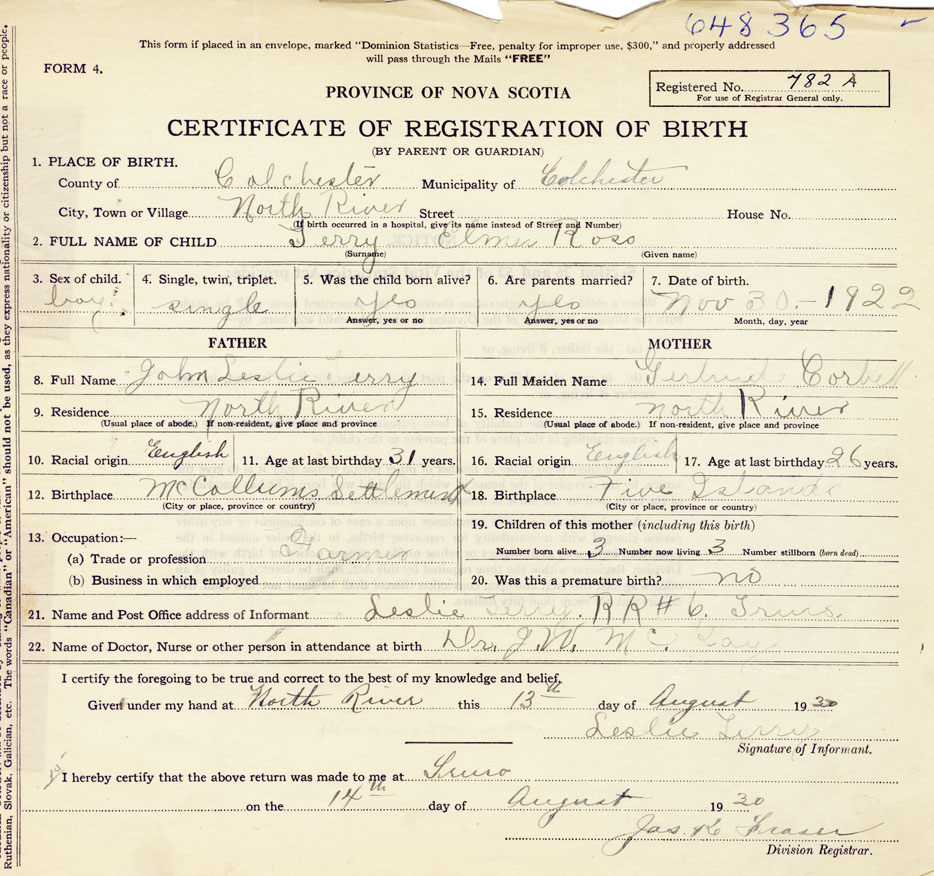 648365
This form if placed in an envelope, marked "Dominion Statistics—Free, penalty for improper use, $300," and properly addressed
will pass through the Mails "FREE"
FORM 4.
Registered No. 782 A
For use of Registrar General only.
PROVINCE OF NOVA SCOTIA
CERTIFICATE OF REGISTRATION OF BIRTH
(BY PARENT OR GUARDIAN)
1. PLACE OF BIRTH.
County of Colchester Municipality of Colchester
City, Town or Village North River Street House No.
(If birth occurred in a hospital, give its name instead of Street and Number)
2. FULL NAME OF CHILD Terry Elmer Ross
(Surname) (Given name)
3. Sex of child. 4. Single, twin, triplet. 5. Was the child born alive? 6. Are parents married? 7. Date of birth.
boy. single yes yes Nov 30 - 1922
Answer, yes or no Answer, yes or no Month, day, year
FATHER MOTHER
8. Full Name John Leslie Terry 14. Full Maiden Name Gertrude Corbett
9. Residence North River 15. Residence North River
(Usual place of abode.) If non-resident, give place and province (Usual place of abode.) If non-resident, give place and province
10. Racial origin English 11. Age at last birthday 31 years. 16. Racial origin English 17. Age at last birthday 26 years.
12. Birthplace McCallums Settlement 18. Birthplace Five Islands
(City or place, province or country) (City or place, province or country)
13. Occupation:— 19. Children of this mother (including this birth)
(a) Trade or profession Farmer Number born alive 3 Number now living 3 Number stillborn (born dead)
(b) Business in which employed 20. Was this a premature birth? no
21. Name and Post Office address of Informant Leslie Terry. RR#6. Truro
22. Name of Doctor, Nurse or other person in attendance at birth Dr. J. W. McKay
I certify the foregoing to be true and correct to the best of my knowledge and belief.
Given under my hand at North River this 13th day of August 1930
Leslie Terry
Signature of Informant.
I hereby certify that the above return was made to me at Truro
on the 14th day of August 1930
Jas K Fraser
Division Registrar.
Ruthenian, Slovak, Galician, etc. The words "Canadian" or "American" should not be used, as they express nationality or citizenship but not a race or people.